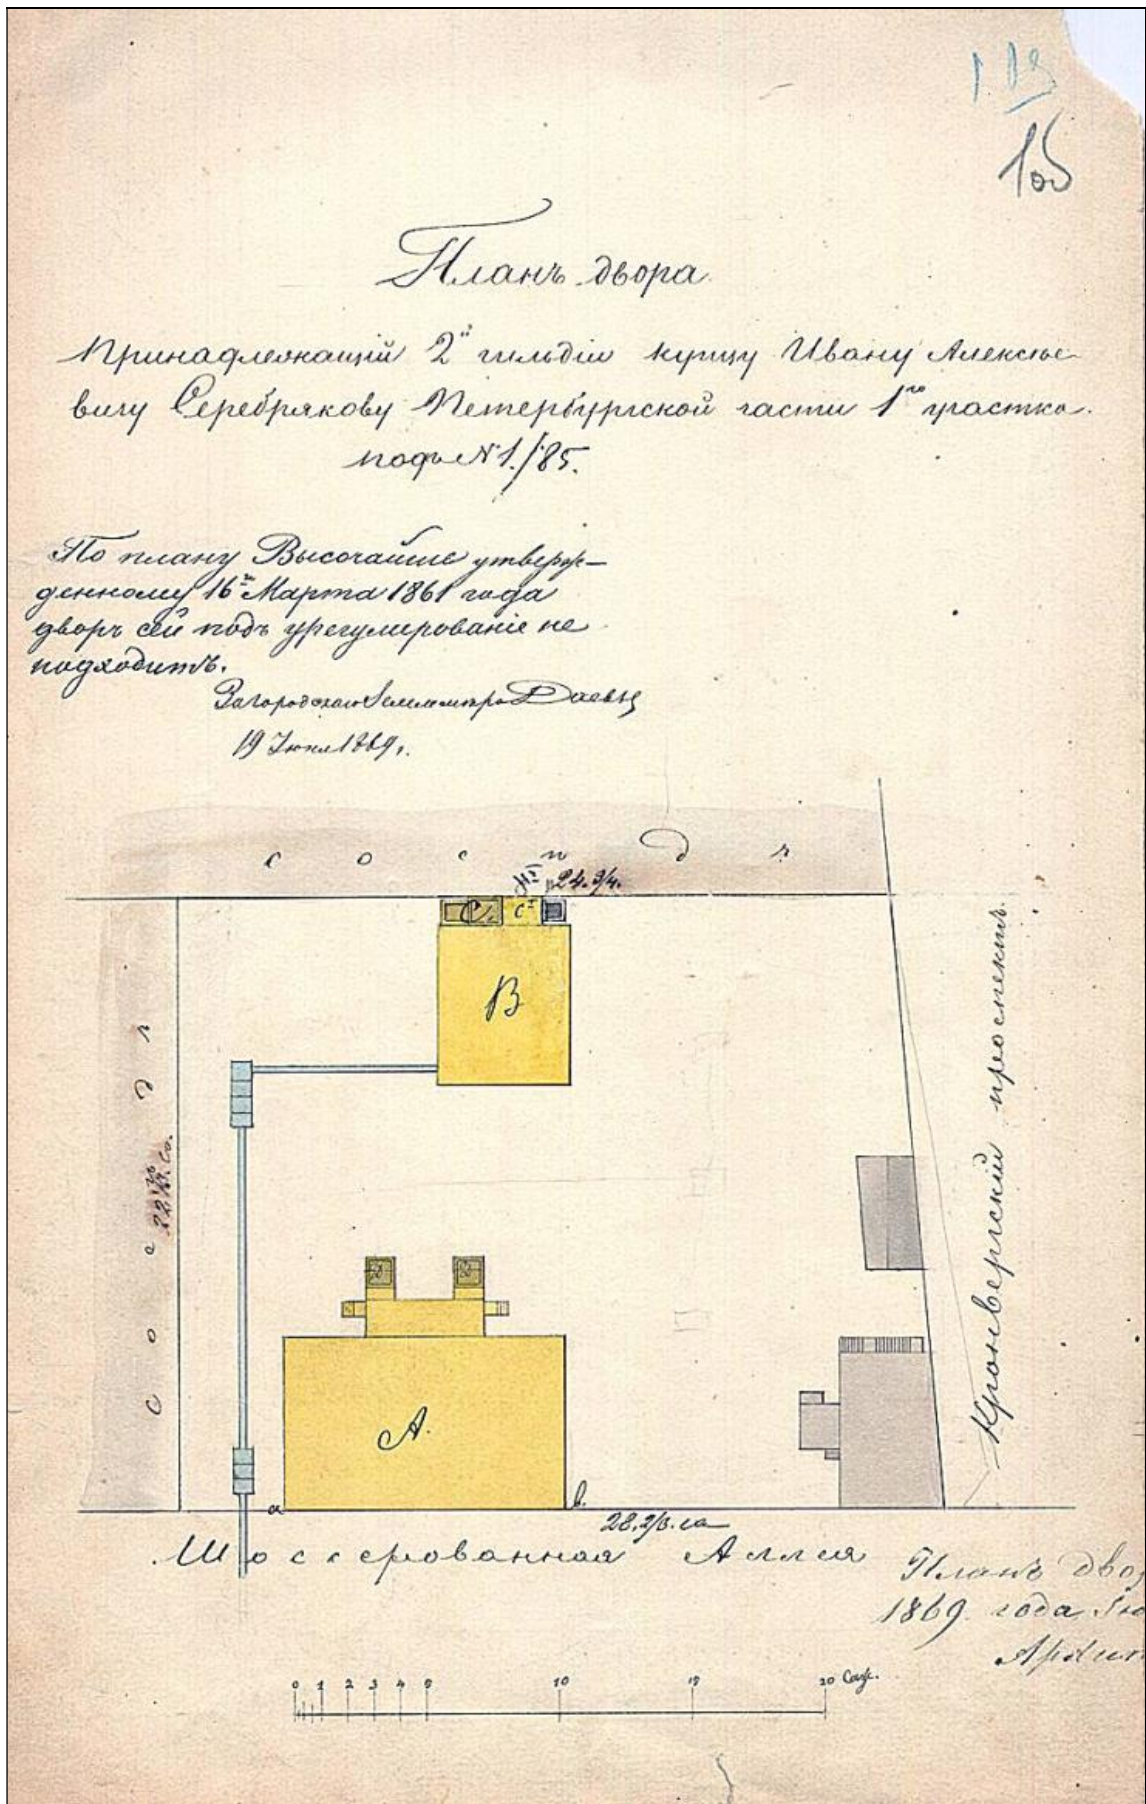 105
Планъ двора
принадлежащій 2й гильдіи купцу Ивану Алексѣе-
вичу Серебрякову Петербургской части 1го участка
подъ №1./85.
По плану Высочайше утверж-
денному 16го Марта 1861 года
дворъ сей подъ урегулированіе не
подходитъ.
19 Іюня 1869 г.
сосѣдъ
24.3/4.
C. C
B
сосѣдъ
Кронверкскій проспектъ.
A.
a в.
28.2/3. са
Шоссерованная Аллея
Планъ дво
1869. года Ію
Архит
0 1 2 3 4 5 10 15 20 Саж.